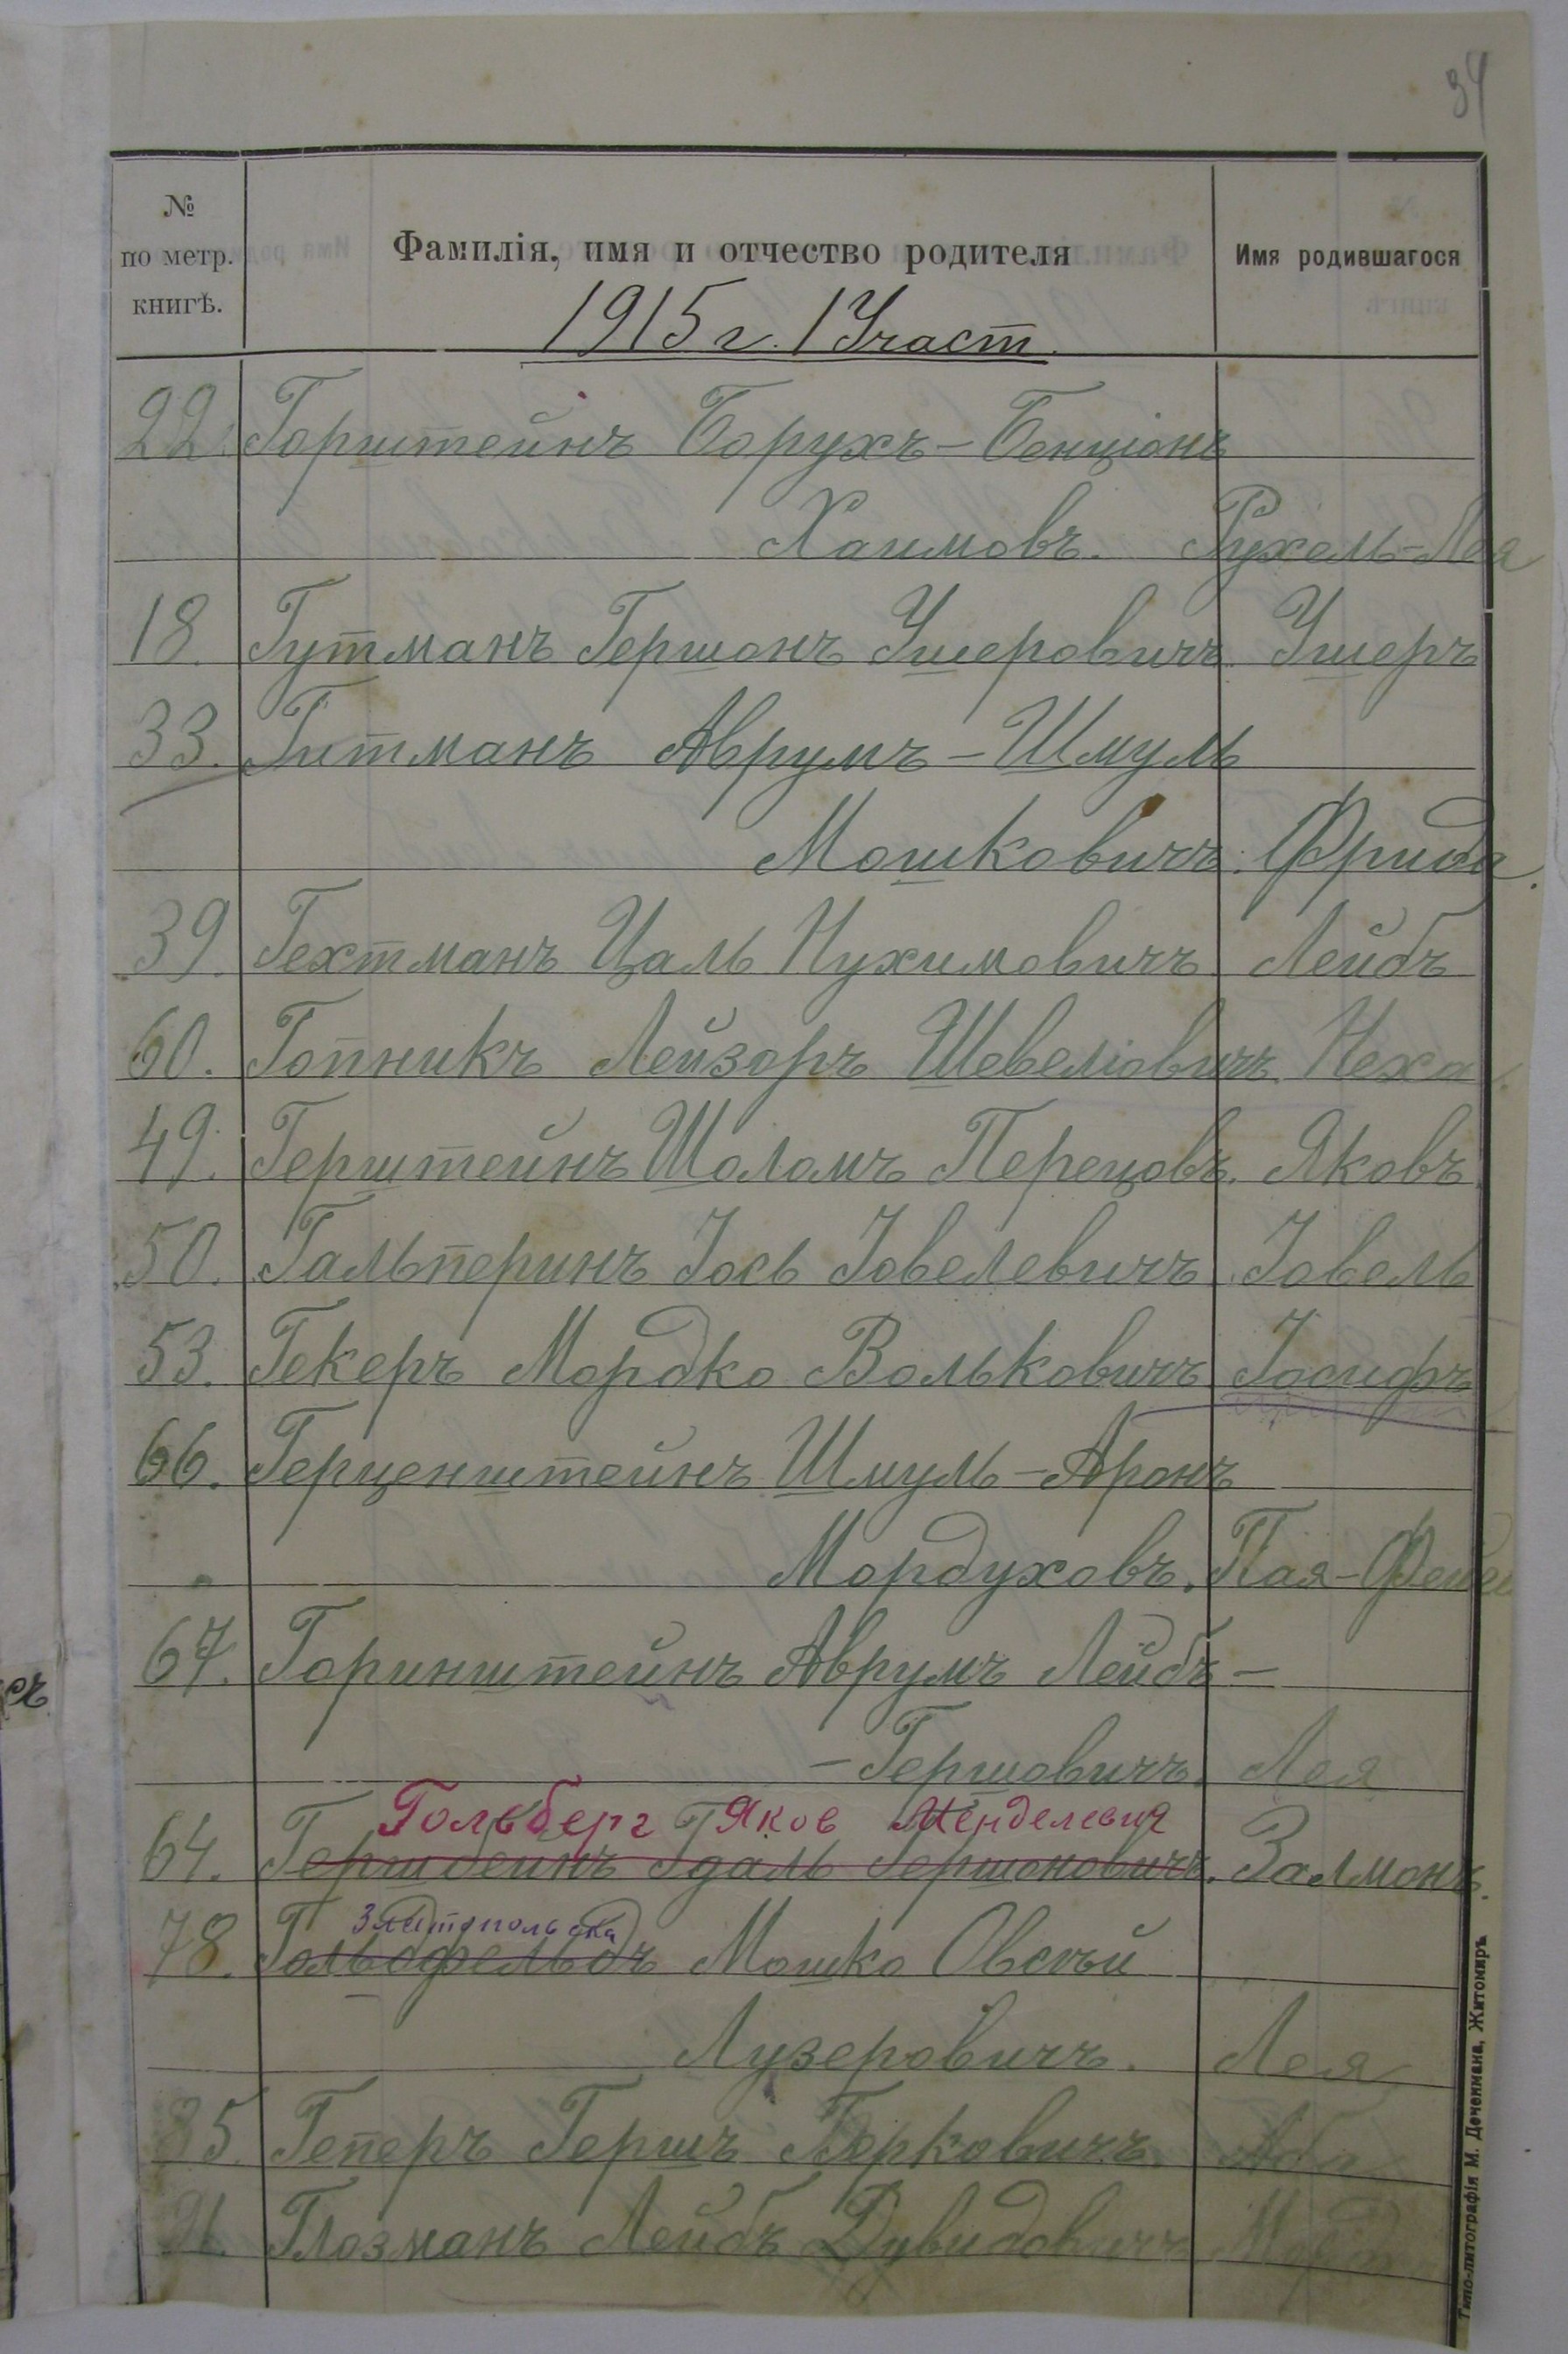 34
№ по метр. книгѣ.
Фамилія, имя и отчество родителя
Имя родившагося
1915 г. 1 Участ.
22. Горштейнъ Борухъ-Бенціонъ
Хаимовъ. Рухель-Лея
18. Гутманъ Гершонъ Ушеровичъ Ушеръ
33. Гитманъ Аврумъ-Шмуль
Мошковичъ. Фрида.
39. Гехтманъ Цаль Нухимовичъ Лейбъ
60. Гопникъ Лейзоръ Шевеліовичъ Неха.
49. Герштейнъ Шоломъ Перецовъ. Яковъ
50. Гальперинъ Іось Іовелевичъ Іовель
53. Гекеръ Мордко Вольковичъ Іосифъ
66. Герценштейнъ Шмуль-Аронъ
Мордуховъ. Пая-
67. Горинштейнъ Аврумъ Лейбъ-
-Гершовичъ. Лея
Гольберг Яков Менделевич
64. Гдаль Гершоновичъ. Залмонъ.
78. Гольдфельдъ Мошко Овсѣй
Лузеровичъ. Лея
85. Геперъ Гершъ Берковичъ. Аба
91. Глозманъ Лейбъ Дувидовичъ
Типо-литографія М. Дененмана, Житомиръ